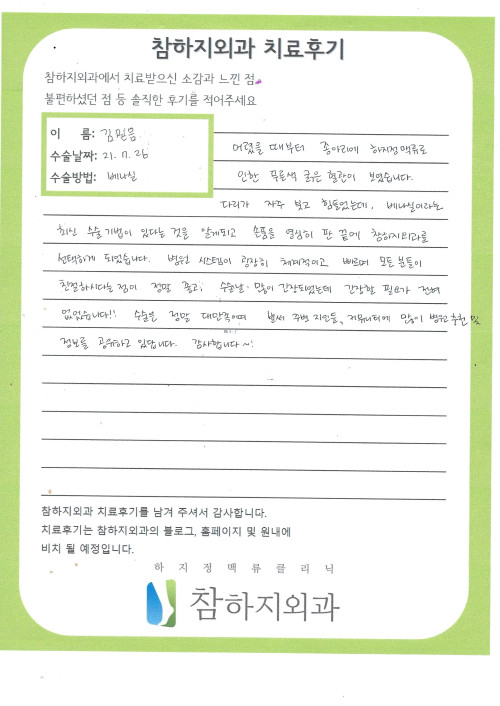 참하지외과 치료후기
참하지외과에서 치료받으신 소감과 느낀 점
불편하셨던 점 등 솔직한 후기를 적어주세요
이 름: 김믿음
수술날짜: 21. 7. 26
수술방법: 베나실
어렸을 때부터 종아리에 하지정맥류로
인한 푸른색 굵은 혈관이 보였습니다.
다리가 자주 붓고 힘들었는데, 베나실이라는
최신 수술기법이 있다는 것을 알게되고 손품을 열심히 판 끝에 참하지외과를
선택하게 되었습니다. 병원 시스템이 굉장히 체계적이고 빠르며 모든 분들이
친절하시다는 점이 정말 좋고, 수술날 많이 긴장되었는데 긴장할 필요가 전혀
없었습니다!! 수술은 정말 대만족이며 벌써 주변 지인들, 커뮤니티에 많이 병원 추천 및
정보를 공유하고 있답니다. 감사합니다~!
참하지외과 치료후기를 남겨 주셔서 감사합니다.
치료후기는 참하지외과의 블로그, 홈페이지 및 원내에
비치 될 예정입니다.
하지정맥류클리닉
참하지외과